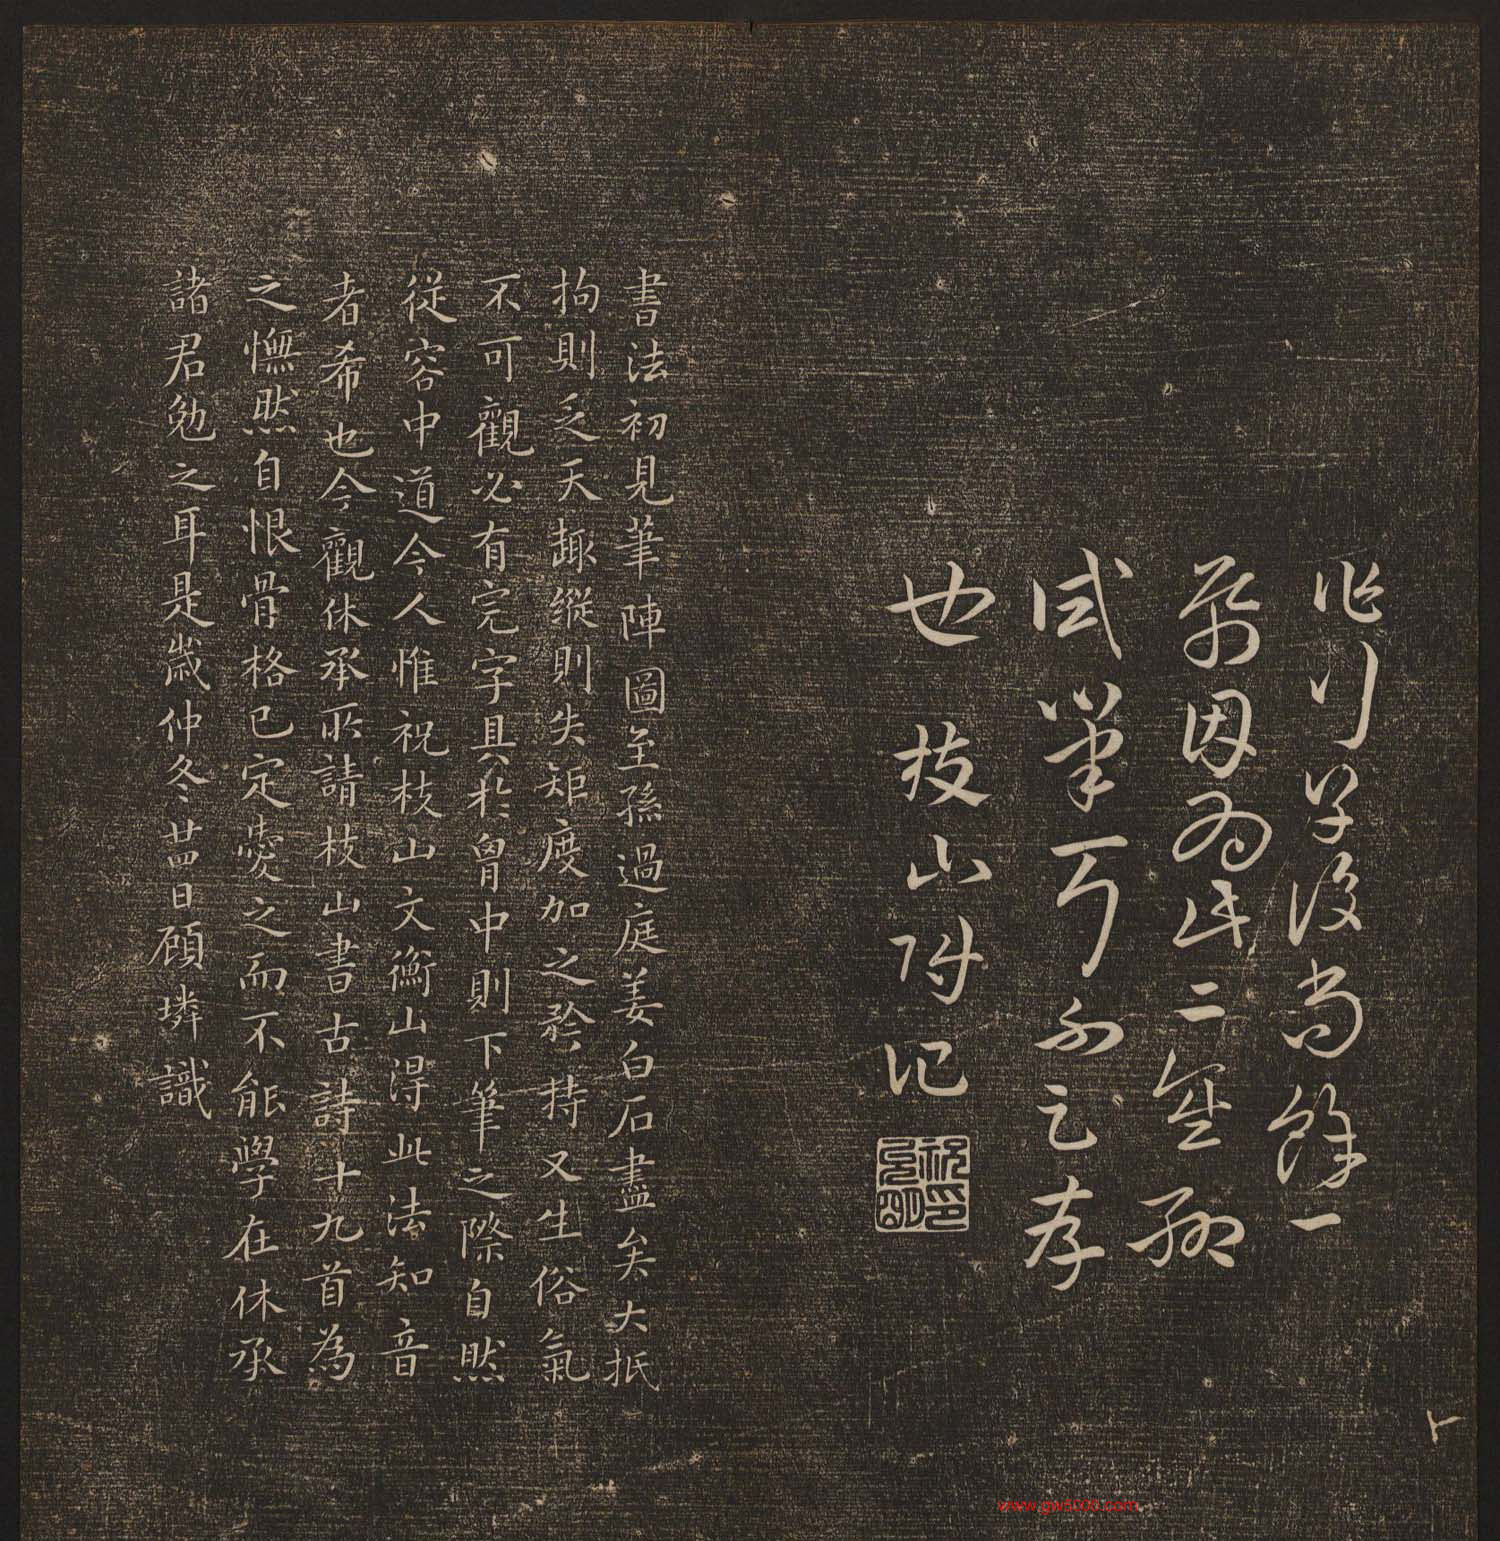 作行草後尚餘一
紙因為此二壑劒
試筆耳不足存
也 枝山附記
祝允明印
書法初見筆陣圖至孫過庭姜白石盡矣大抵
拘則乏天趣縱則失矩度加之矜持又生俗氣
不可觀必有完字具於胷中則下筆之際自然
從容中道今人惟祝枝山文衡山得此法知音
者希也今觀休承所請枝山書古詩十九首為
之憮然自恨骨格已定愛之而不能學在休承
諸君勉之耳是歲仲冬廿四日顧璘識
www.gw5000.com